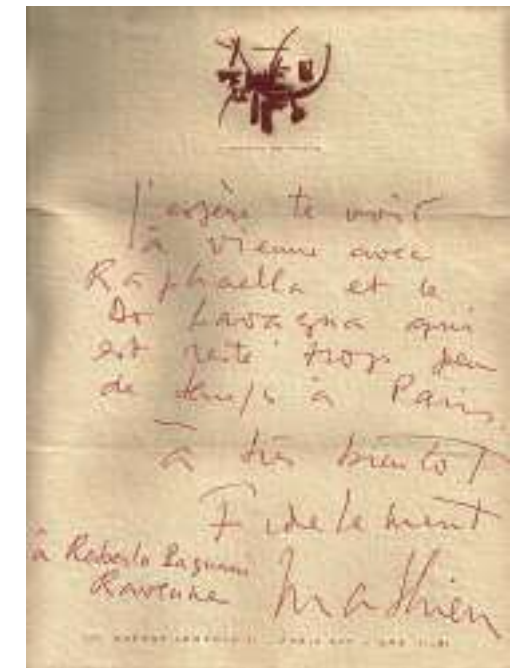 J'espère te voir
à Vienne avec
Raphaella et le
Dr Lavagna qui
est resté trop peu
de temps à Paris.
À très bientôt
Fidelement
Mathieu
à Roberto Pagnani
Ravenna